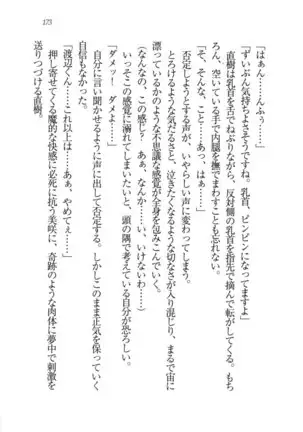 173
「はぁん……んふぅ……」
「ずいぶん気持ちよさそうですね。乳首、ビンビンになってますよ」
直樹は乳首を舌でねぶりながら、反対側の乳首を指先で摘んで転がしてくる。もち
ろん、空いている手で内腿を撫でまわすことも忘れない。
「そ、そんな、こと……あっ、はぁ……」
否定しようとする声が、いやらしい声に変わってしまう。
とろけるような気だるさと、泣きたくなるような切なさが入り混じり、まるで宙に
漂っているかのような不思議な感覚が全身を包みこんでいく。
（なんなの、この感じ？　あぁ、なんか……い、いけないわ……）
いっそこの感覚に溺れてしまいたいと、頭の隅で考えている自分が恐ろしい。
「ダメッ！　ダメよ……」
自分に言い聞かせるように声に出して否定する。しかしこのまま正気を保っていく
自信もなくなっていた。
「渡辺くん……これ以上は……あぁ、やめてぇ……」
押し寄せてくる魔的な快感に必死に抗う美咲に、奇跡のような肉体に夢中で刺激を
送りつづける直樹。